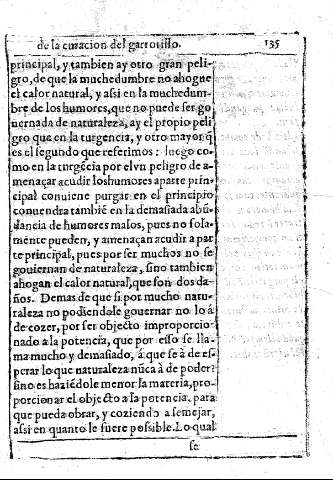 de la curacion del garrotillo. 135
principal, y tambien ay otro gran peli-
gro, de que la muchedumbre no ahogue
el calor natural, y assi en la muchedum-
bre de los humores, que no puede ser go
uernada de naturaleza, ay el propio peli
gro que en la turgencia, y otro mayor q̃
es el segundo que referimos: luego co-
mo en la turgẽcia por el vn peligro de a-
menaçar acudir los humores a parte prin-
cipal conuiene purgar en el principio
conuendra tambiẽ en la demasiada abũ
dancia de humores malos, pues no sola-
mente pueden, y amenaçan acudir a par
te principal, pues por ser muchos no se
gouiernan de naturaleza, sino tambien
ahogan el calor natural, que son dos da-
ños. Demas de que si por mucho natu-
raleza no podiendole gouernar no lo à
de cozer, por ser objecto improporcio-
nado a la potencia, que por esso se lla-
ma mucho y demasiado, á que se à de es-
perar lo que naturaleza nũca à de poder?
sino es haziẽdole menor la materia, pro-
porcionar el objecto a la potencia, para
que pueda obrar, y coziendo asemejar,
assi en quanto le fuere possible. Lo qual
se